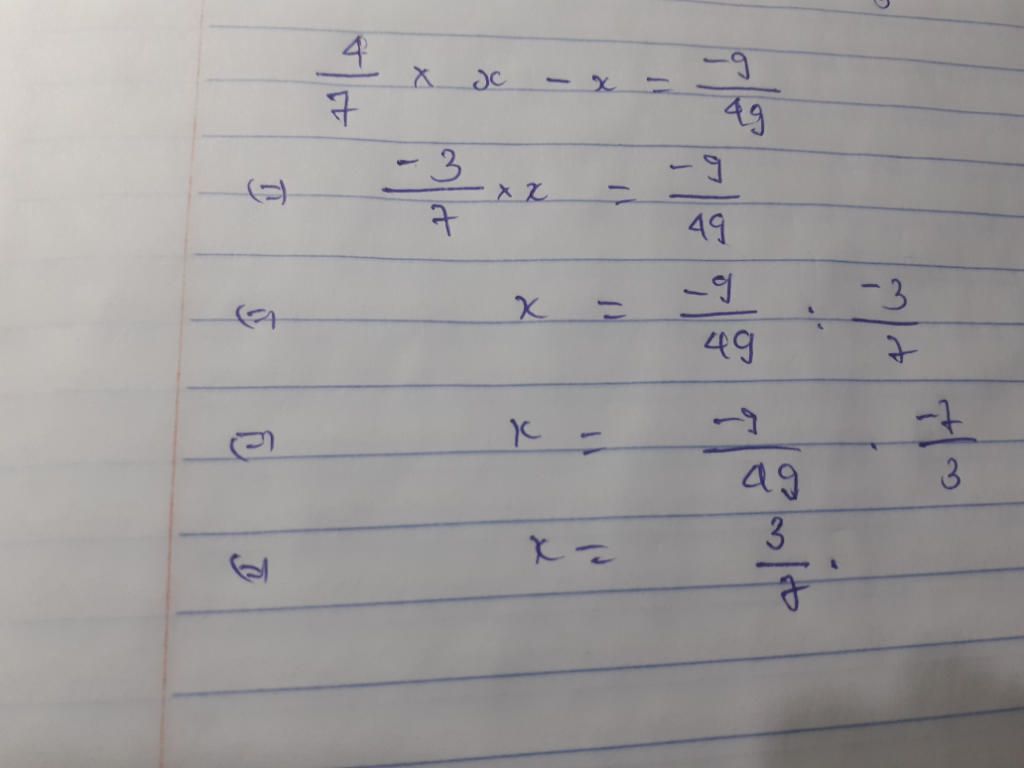 4/7 × x - x = -9/49
(=) -3/7 × x = -9/49
(=) x = -9/49 : -3/7
(=) x = -9/49 . -7/3
(=) x = 3/7 .